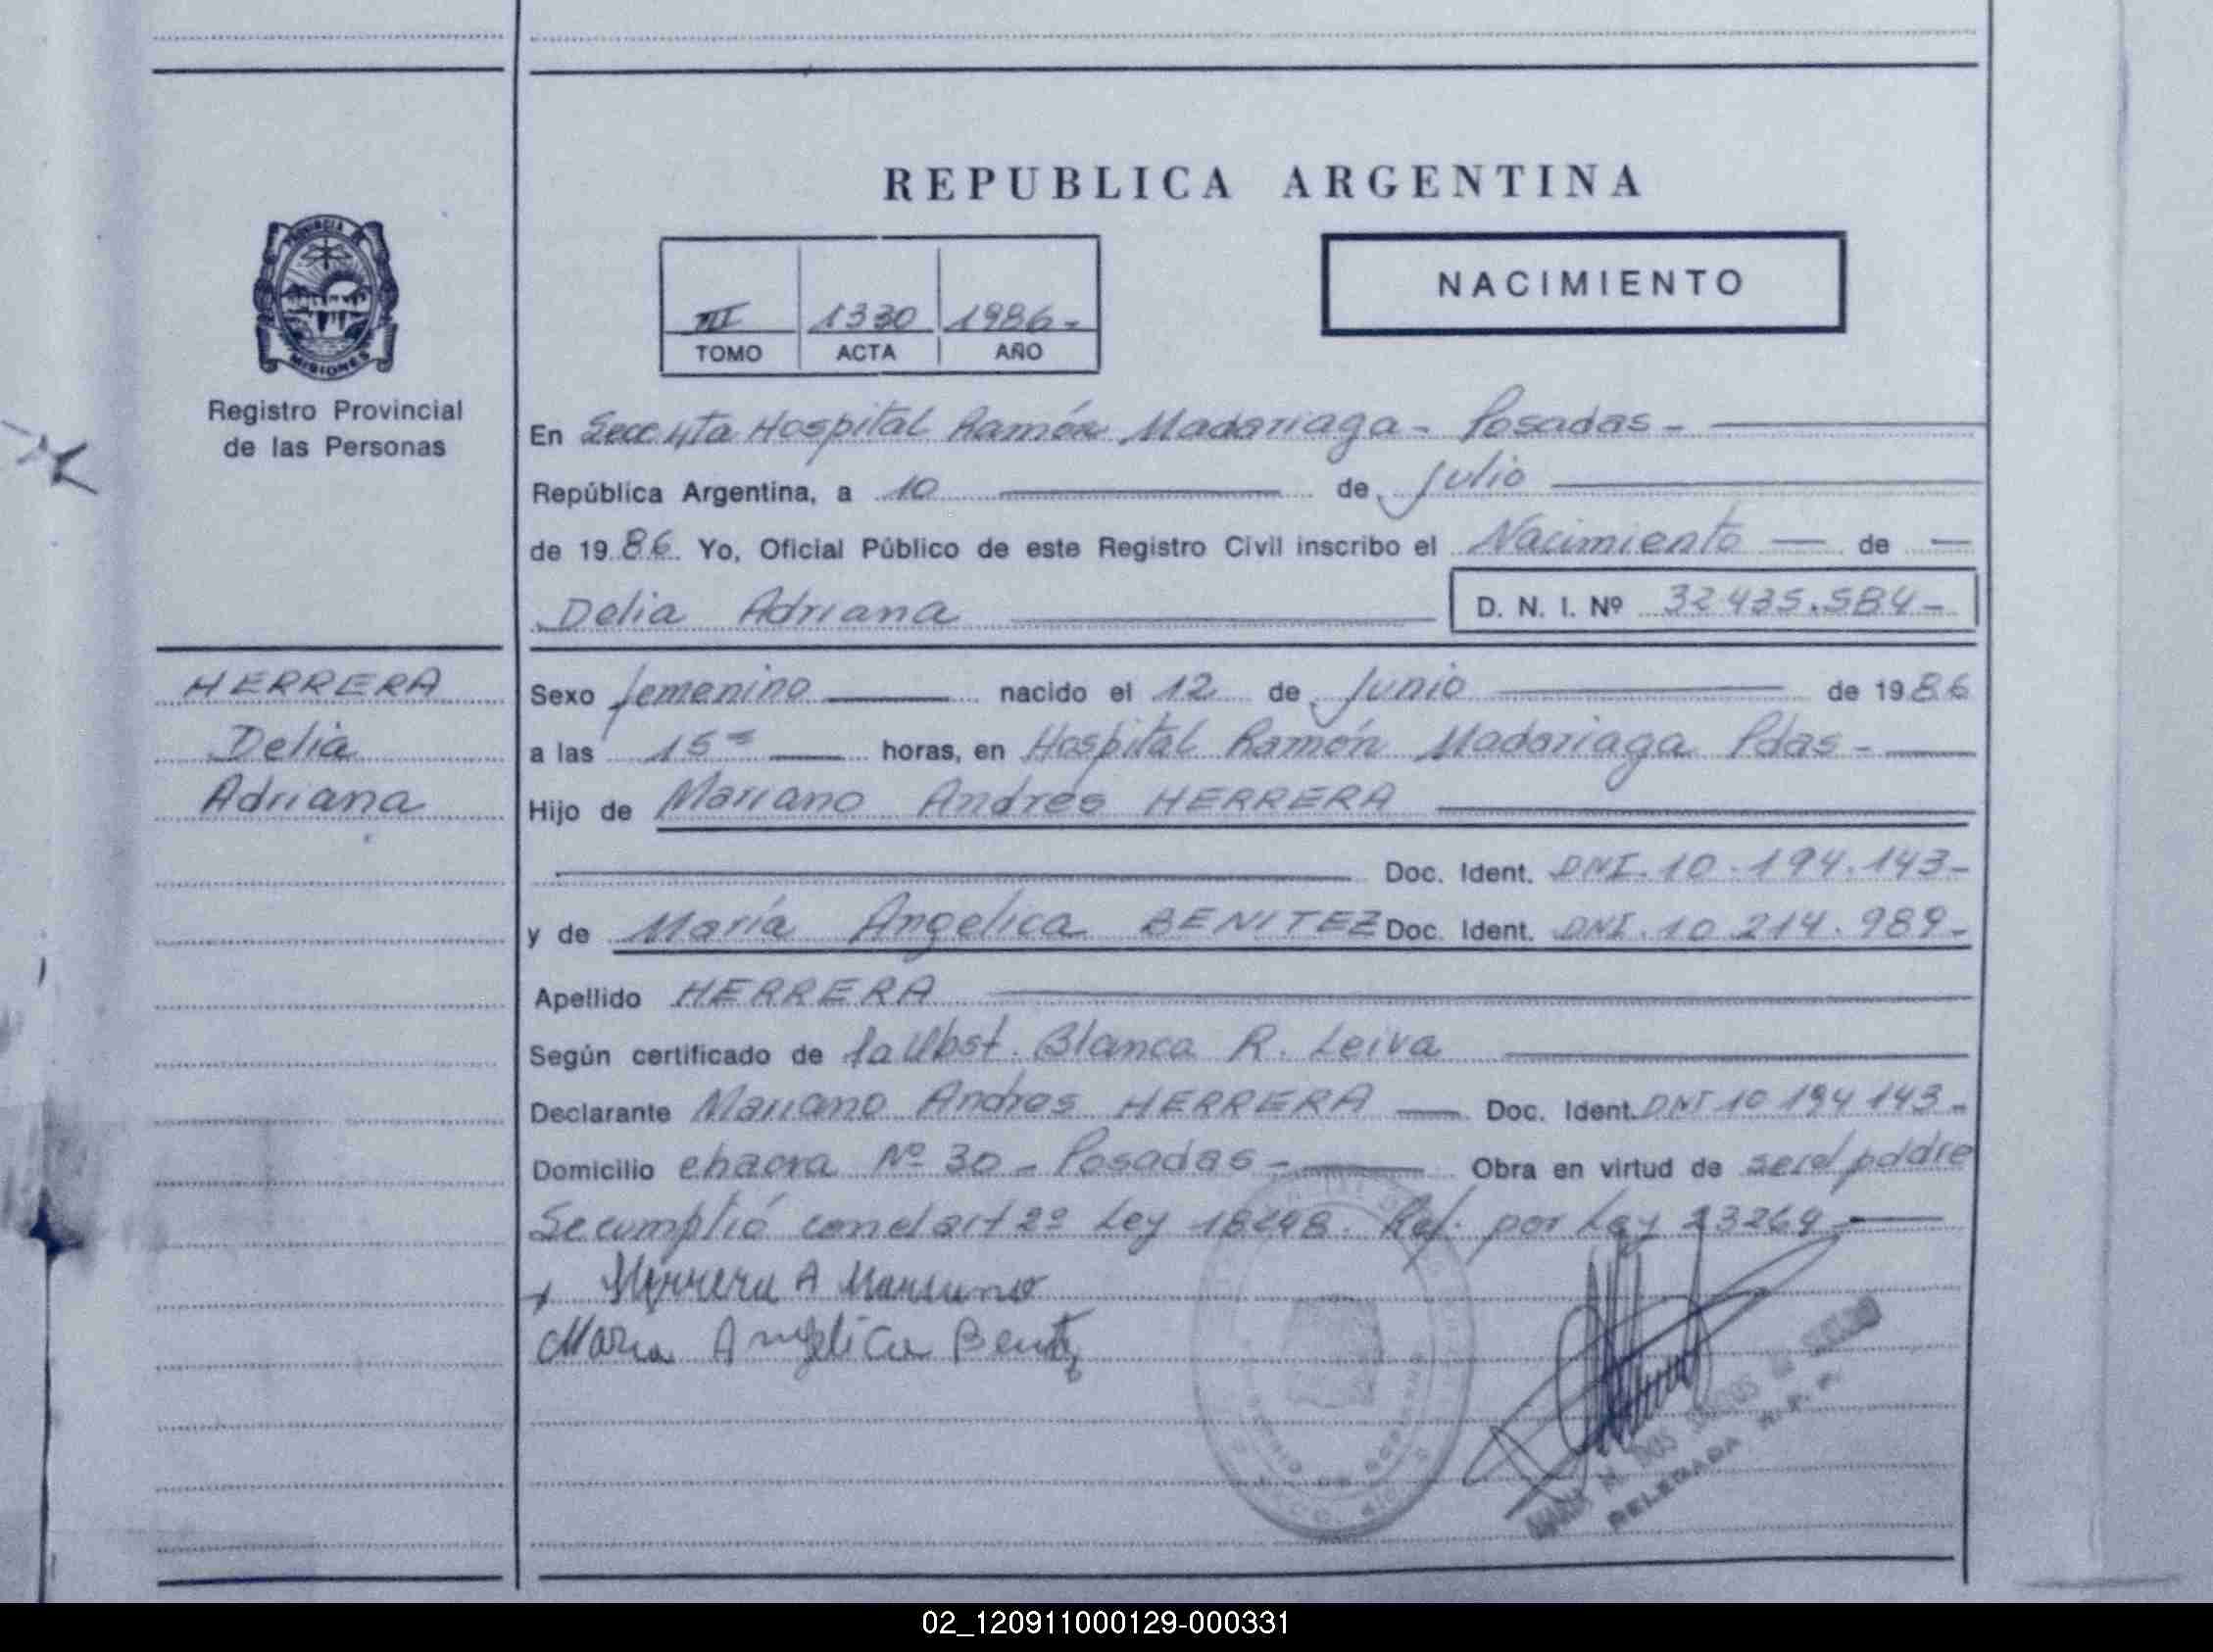 REPUBLICA ARGENTINA
PROVINCIA DE
MISIONES
Registro Provincial
de las Personas
III 1330 1986-
TOMO ACTA AÑO
NACIMIENTO
En Secc 4ta Hospital Ramón Madariaga - Posadas -
República Argentina, a 10 de Julio
de 1986. Yo, Oficial Público de este Registro Civil inscribo el Nacimiento — de —
Delia Adriana D. N. I. Nº 32435.584-
HERRERA
Delia
Adriana
Sexo femenino nacido el 12 de Junio de 1986
a las 15 horas, en Hospital Ramón Madariaga Pdas -
Hijo de Mariano Andres HERRERA
Doc. Ident. DNI. 10.194.143-
y de María Angelica BENITEZ Doc. Ident. DNI. 10 214.989-
Apellido HERRERA
Según certificado de la Obst. Blanca R. Leiva
Declarante Mariano Andres HERRERA — Doc. Ident. DNI 10 194 143-
Domicilio chacra Nº 30 - Posadas - Obra en virtud de ser el padre
Se cumplió con el art 2º Ley 18248. Ref. por Ley 23264
x Herrera A Mariano
Maria Angelica Benitez
DOS SANTOS de
DELEGADA R. P. P.
02_120911000129-000331